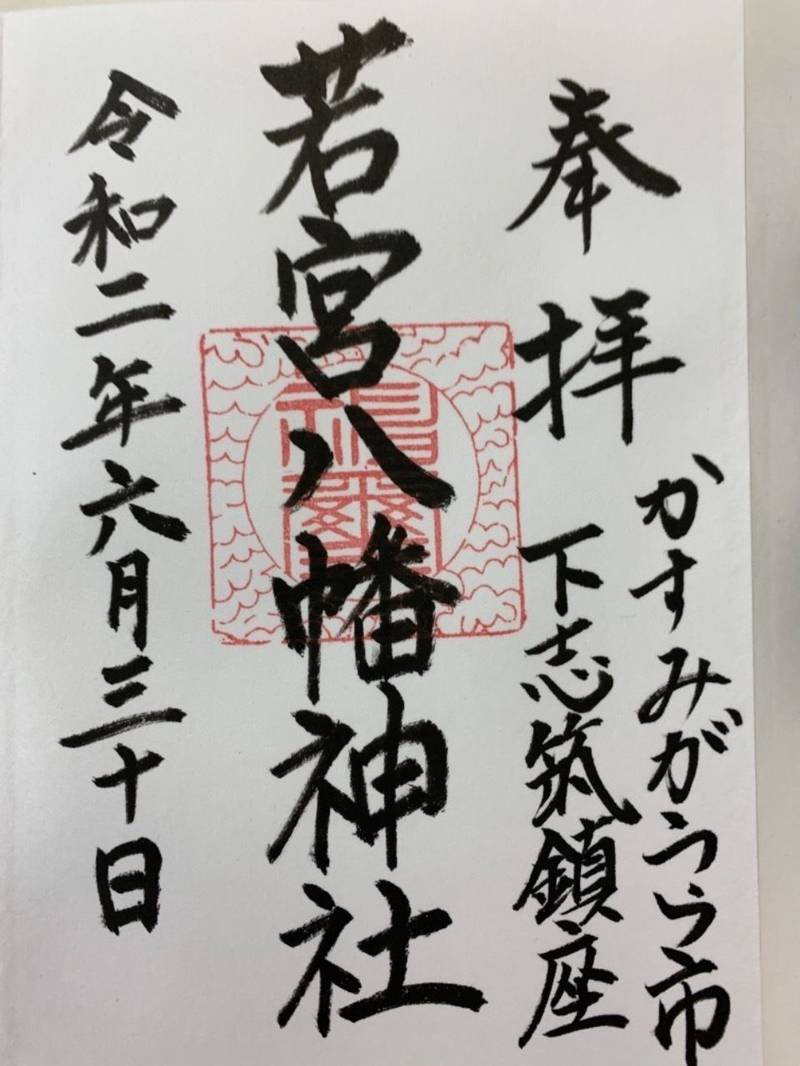 奉拝
かすみがうら市
下志筑鎮座
若宮八幡神社
令和二年六月三十日